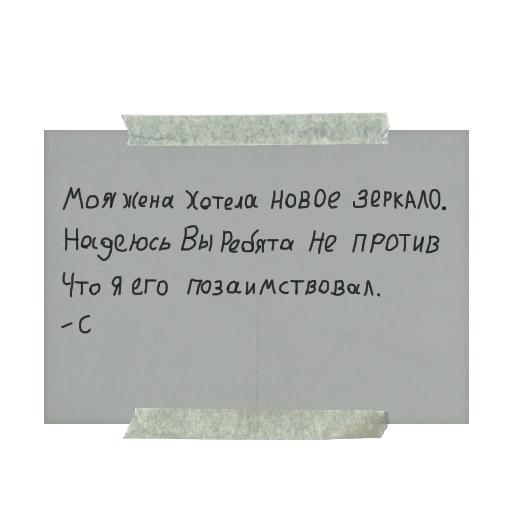 Моя жена Хотела НОВОе ЗЕРКАЛО.
Надеюсь Вы Ребята Не ПРОТИВ
Что Я его позаимствовал.
- С